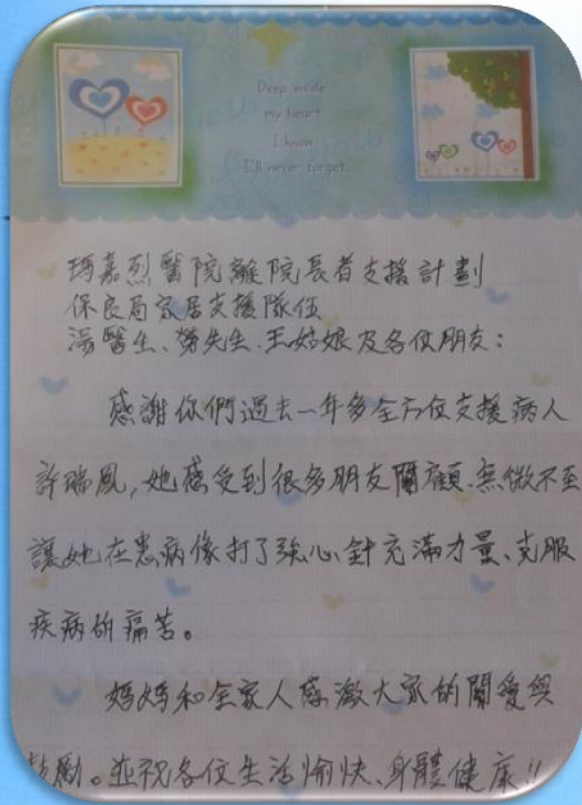 Deep inside
my heart
I know
I'll never forget
瑪嘉烈醫院離院長者支援計劃
保良局家居支援隊伍
湯醫生、勞先生、王姑娘及各位朋友：
感謝你們過去一年多全方位支援病人
許瑞鳳，她感受到很多朋友關顧、無微不至
讓她在患病像打了強心針充滿力量、克服
疾病的痛苦。
媽媽和全家人感激大家的關愛與
鼓勵。並祝各位生活愉快、身體健康!!